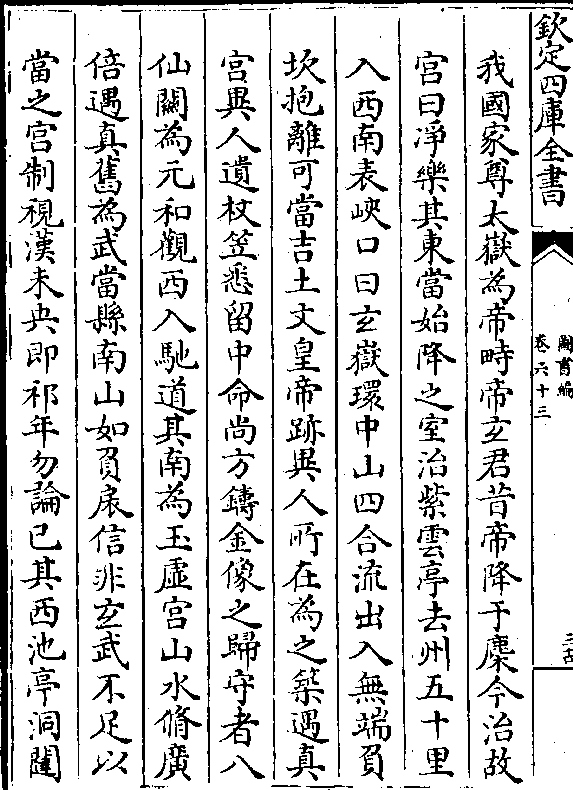 欽定四庫全書
圖書編
卷六十三
我國家尊太嶽為帝畤帝玄君昔帝降于麇今治故
宮曰淨樂其東當始降之室治紫雲亭去州五十里
入西南表峽口曰玄嶽環中山四合流出入無端負
坎抱離可當吉土文皇帝跡異人所在為之築遇真
宮異人遺杖笠悉留中命尚方鑄金像之歸守者八
仙關為元和觀西入馳道其南為玉虛宮山水脩廣
倍遇真舊為武當縣南山如負扆信非玄武不足以
當之宮制視漢未央即祁年勿論已其西池亭洞闥